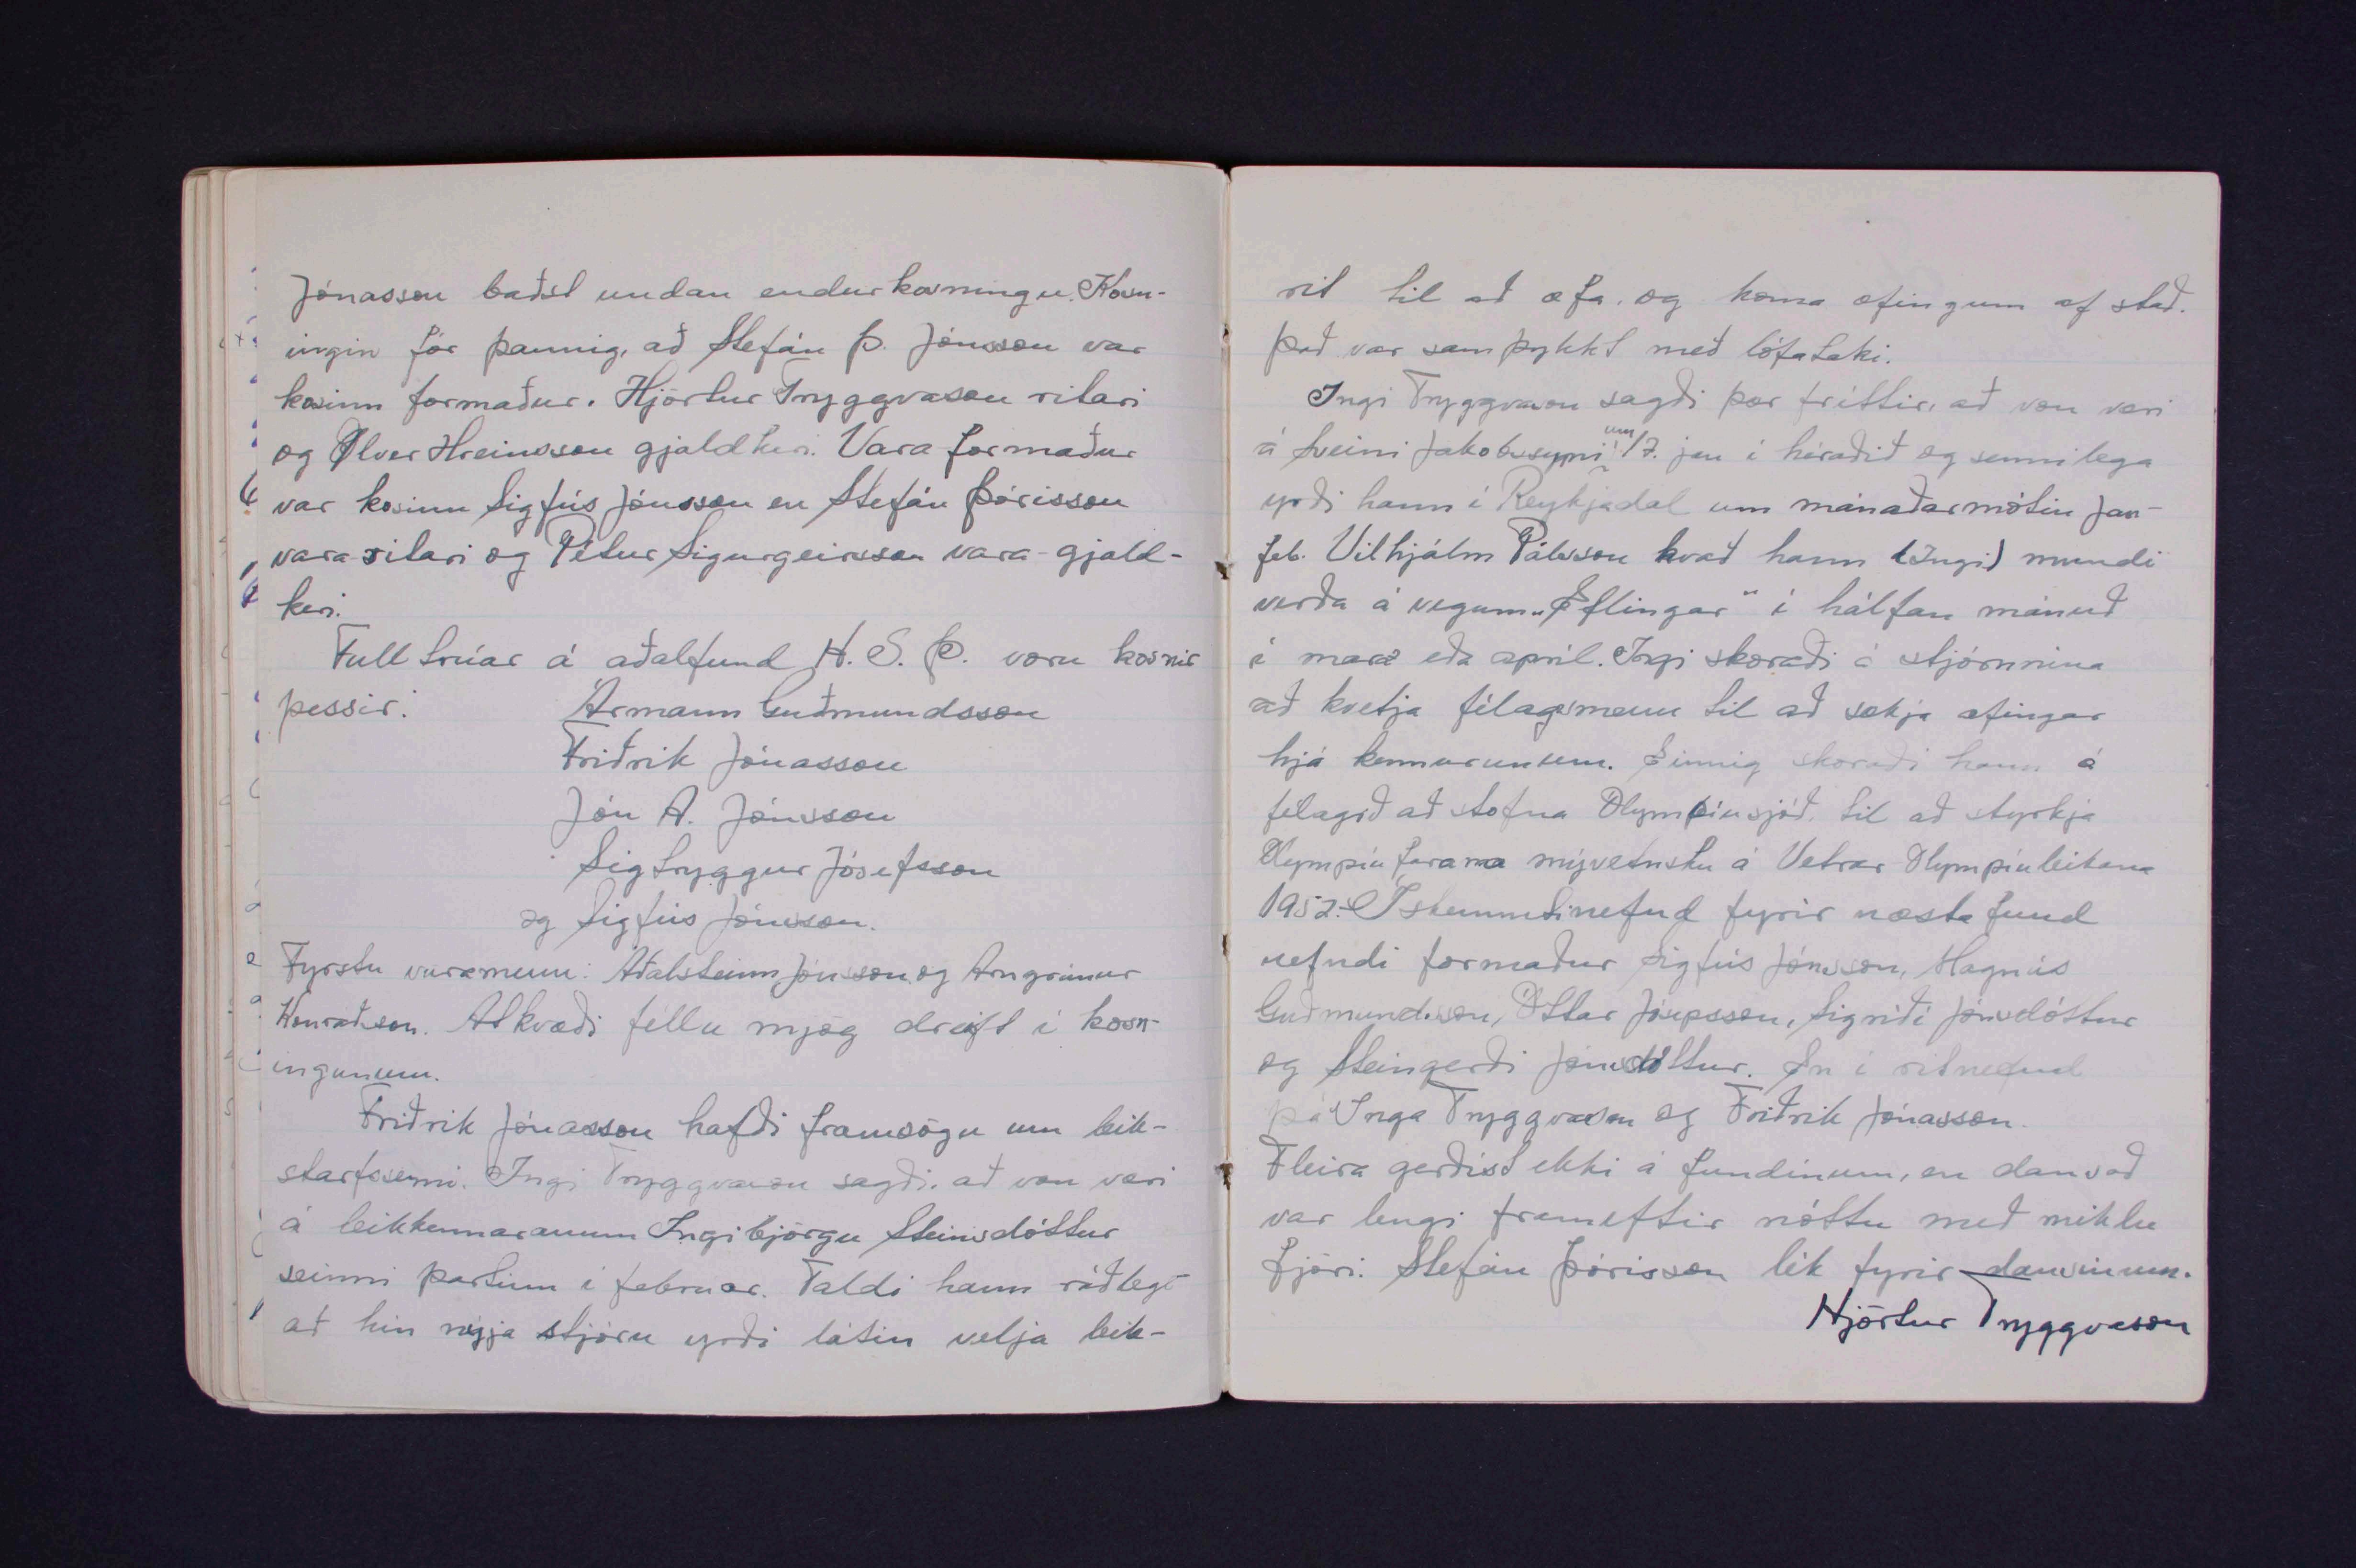 Jónasson baðst undan endurkosningu. Kosn-
ingin fór þannig, að Stefán Þ. Jónsson var
kosinn formaður. Hjörtur Tryggvason ritari
og Ölver Hreinsson gjaldkeri. Vara formaður
var kosinn Sigfús Jónsson en Stefán Þórisson
vara ritari og Pétur Sigurgeirsson vara-gjald-
keri.
Fulltrúar á aðalfund H. S. Þ. voru kosnir
þessir:   Ármann Guðmundsson
Friðrik Jónasson
Jón Á. Jónsson
Sigtryggur Jósefsson
og Sigfús Jónsson.
Fyrstu varamenn: Aðalsteinn Jónsson og Arngrímur
Konráðsson. Atkvæði féllu mjög dreift í kosn-
ingunum.
Friðrik Jónasson hafði framsögu um leik-
starfssemi. Ingi Tryggvason sagði, að von væri
á leikkennaranum Ingibjörgu Steinsdóttur
seinni partinn í febrúar. Taldi hann ráðlegt
að hin nýja stjórn yrði látin velja leik-
rit til að æfa, og koma æfingum af stað.
Það var samþykkt með lófataki.
Ingi Tryggvason sagði þær fréttir, að von væri
á Sveini Jakobssyni um 17. jan í héraðið og sennilega
yrði hann í Reykjadal um mánaðarmótin jan-
feb. Vilhjálm Pálsson kvað hann (Ingi) mundi
verða á vegum „Eflingar" í hálfan mánuð
í mars eða apríl. Ingi skoraði á stjórnina
að hvetja félagsmenn til að sækja æfingar
hjá kennurunum. Einnig skoraði hann á
félagið að stofna Olympíusjóð, til að styrkja
Olympíufarana mývetnsku á Vetrar Olympíuleikana
1952. Í skemmtinefnd fyrir næsta fund
nefndi formaður Sigfús Jónsson, Magnús
Guðmundsson, Óttar Jósepsson, Sigríði Jónsdóttur
og Steingerði Jónsdóttur. En í ritnefnd
þá Inga Tryggvason og Friðrik Jónasson.
Fleira gerðist ekki á fundinum, en dansað
var lengi frameftir nóttu með miklu
fjöri. Stefán Þórisson lék fyrir dansinum.
Hjörtur Tryggvason